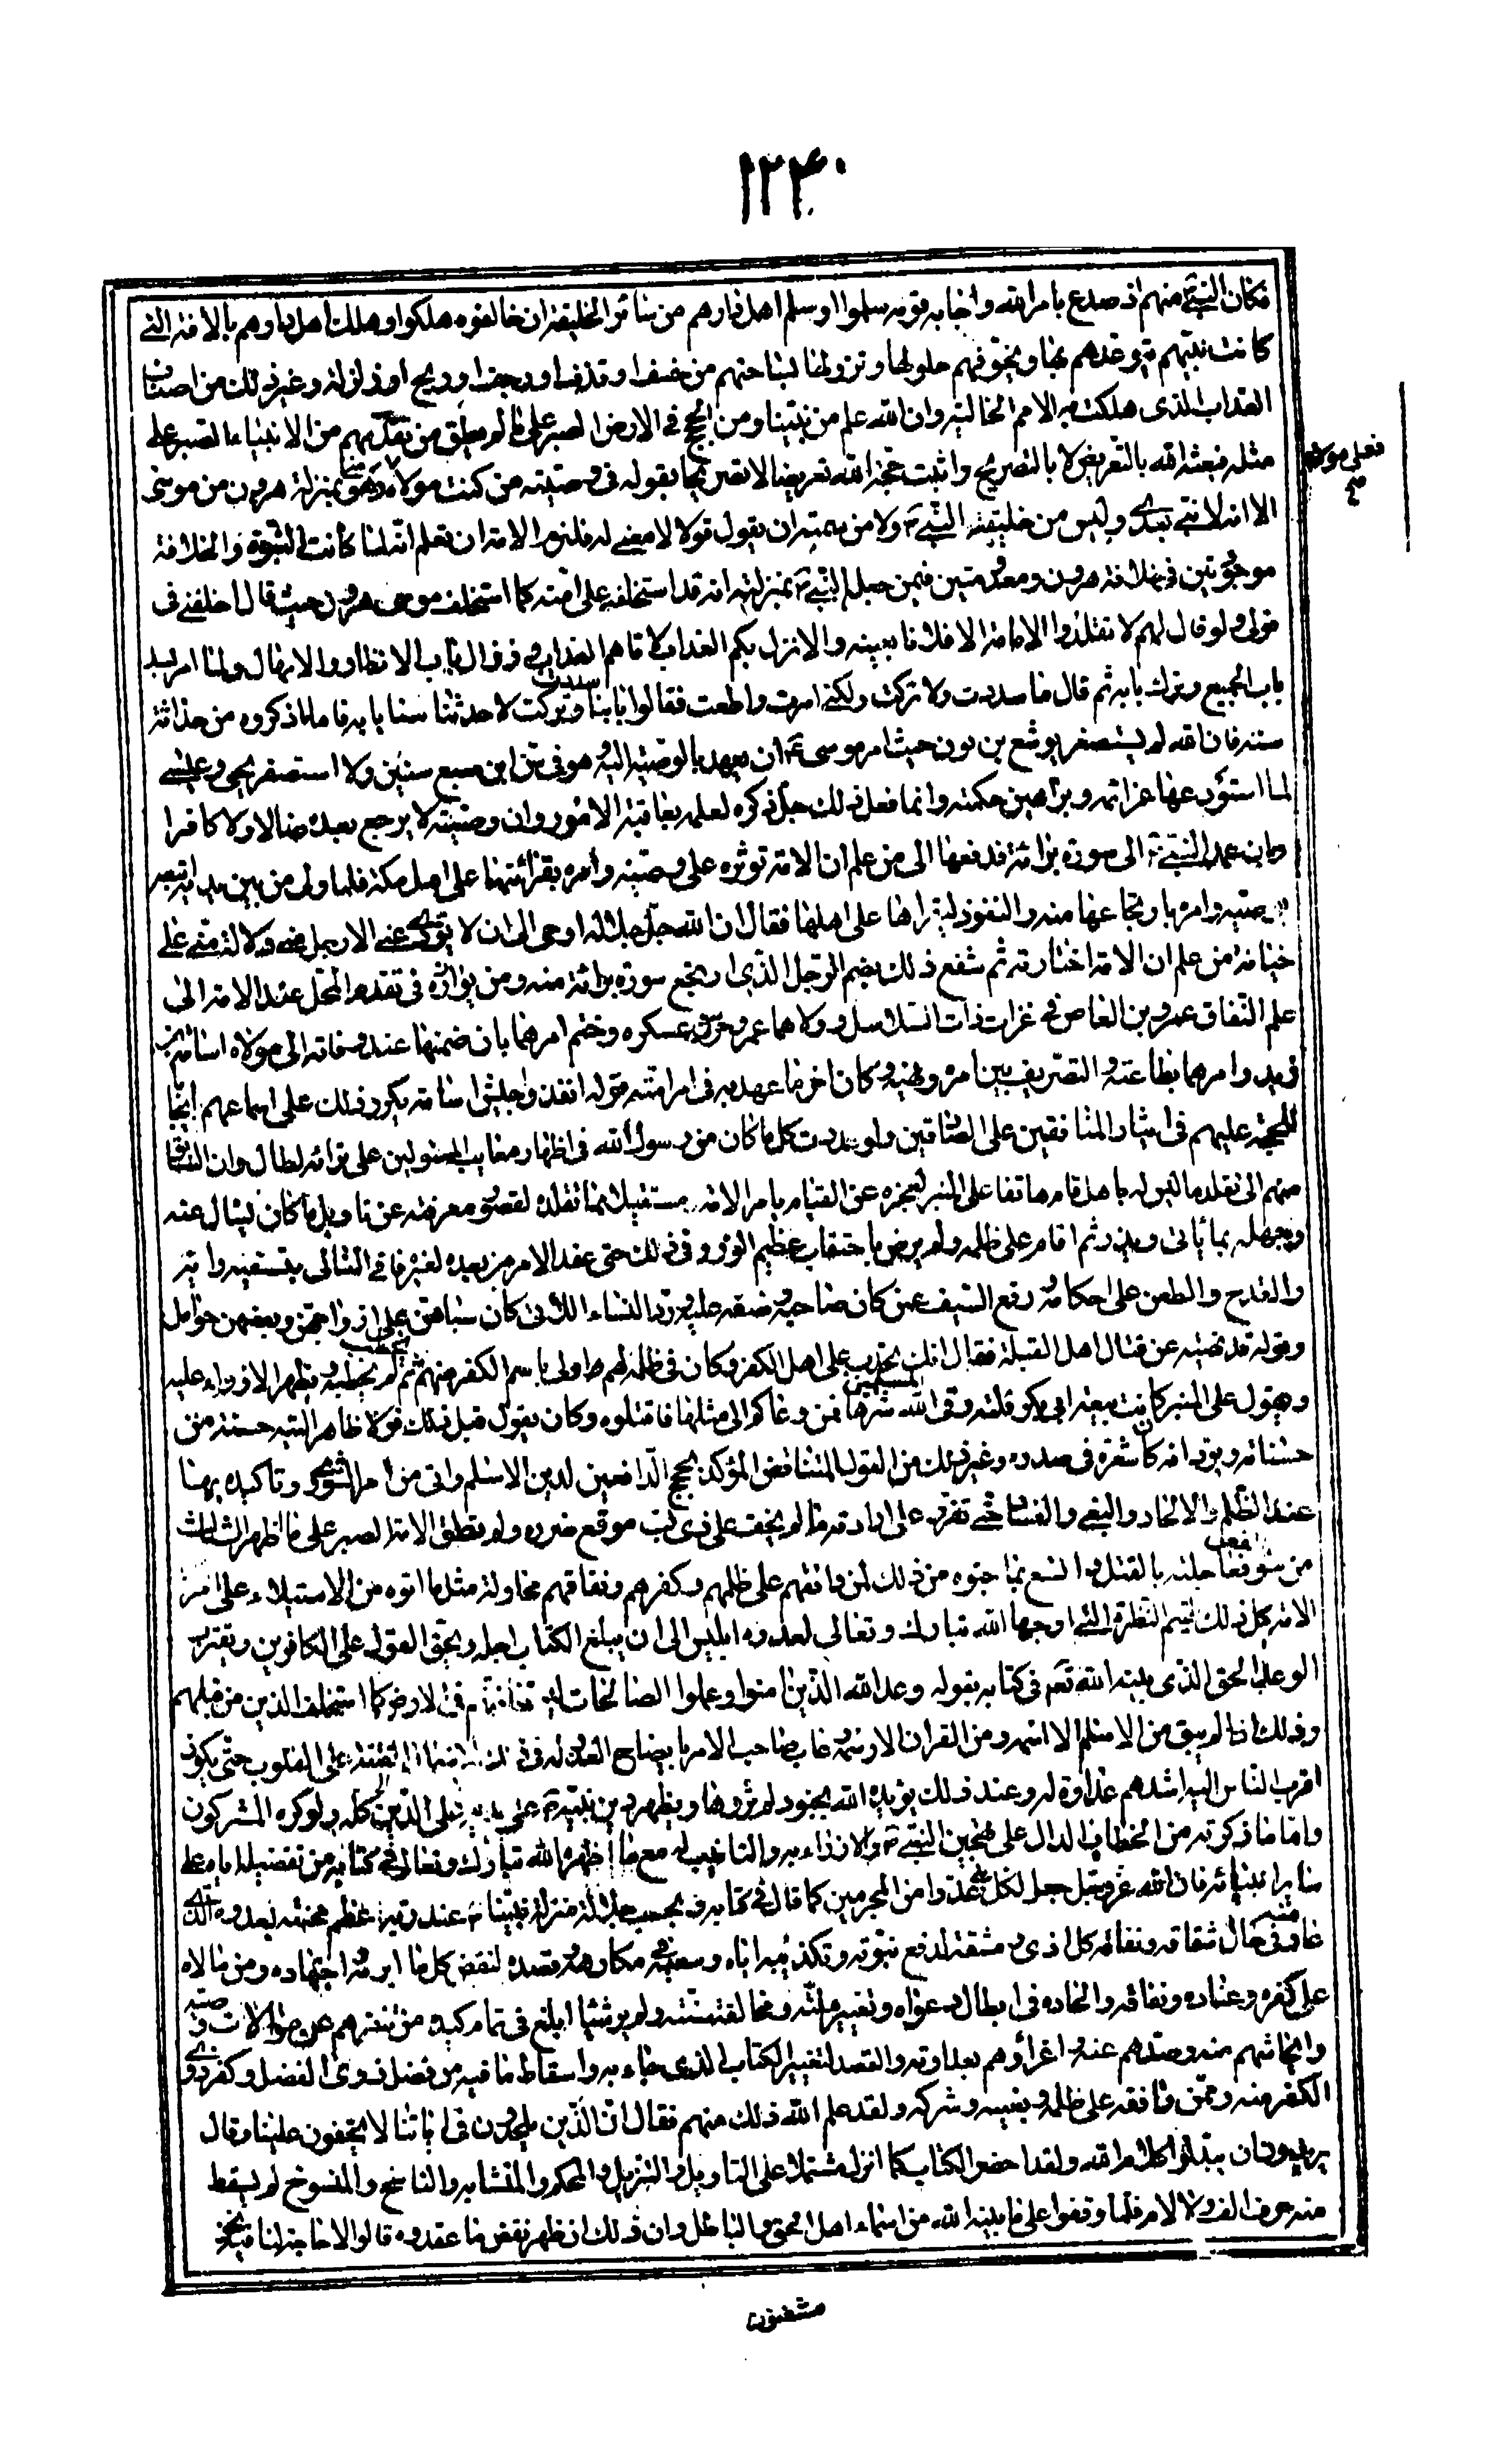 ١٢٤٠
فكان النبي منهم اذ صدع بامر الله واجابه قومه سلموا او سلم اهل دارهم من سائر الخليقة ان خالفوه هلكوا وهلك اهل دارهم بالافة التي
كانت نبيهم يتوعدهم بها ويخوفهم حلولها ونزولها بساحتهم من خسف او قذف او رجف او ريح او زلزلة وغير ذلك من اصناف
العذاب الذي هلكت به الامم الخالية وان الله علم من نبينا ومن الحجج في الارض الصبر على ما لم يطق من تقدمهم من الانبياء الصبر على
مثله فبعثه الله بالتعريض لا بالتصريح واثبت حجة الله تعريضا لا تصريحا بقوله في وصيته من كنت مولاه وهو مني بمنزلة هرون من موسى
فعلي مولاه
الا انه لا نبي بعدي وليس من خليقة النبي ولا من شيمته ان يقول قولا لا معنى له فلزم الامة ان تعلم انه لما كانت النبوة والخلافة
موجودتين في خلافة هرون ومعدومتين فيمن جعله النبي بمنزلته انه قد استخلفه على امته كما استخلف موسى هرون حيث قال اخلفني في
قومي ولو قال لهم لا تقلدوا الامامة الا فلانا بعينه والا نزل بكم العذاب لاتاهم العذاب وزال باب الانظار والامهال ولما امر بسد
باب الجميع وترك بابه ثم قال ما سددت ولا تركت ولكني امرت واطعت فقالوا سددت بابنا وتركت لاحدثنا سنا بابه فاما ما ذكروه من حداثة
سنه فان الله لم يستصغر يوشع بن نون حيث امر موسى ان يعهد بالوصية اليه وهو في سن ابن سبع سنين ولا استصغر يحيى وعيسى
لما استودعهما عزائمه وبراهين حكمته وانما فعل ذلك جل ذكره لعلمه بعاقبة الامور وان وصيته لا يرجع بعده ضالا ولا كافرا
وبان عمد النبي الى سورة براءة فدفعها الى من علم ان الامة توثره على وصيته وامره بقرائتها على اهل مكة فلما ولى من بين يديه اتبعه
بوصيه وامره بارتجاعها منه والنفوذ ليقراها على اهلها فقال ان الله جل جلاله اوحى الي ان لا يؤدي عني الا رجل مني دلالة منه على
خيانة من علم ان الامة اختارته ثم شفع ذلك بضم الرجل الذي ارتجع سورة براءة منه ومن يوازره في تقدم المحل عند الامة الى
علم النفاق عمرو بن العاص في غزات ذات السلاسل وولاهما عمرو حرس عسكره وختم امرهما بان ضمنهما عند وفاته الى مولاه اسامة بن
زيد وامرهما بطاعته والتصريف بين امره ونهيه وكان اخر ما عهد به في امر امته قوله انفذوا جيش اسامة يكرر ذلك على اسماعهم ايجابا
للحجة عليهم في ايثار المنافقين على الصادقين ولو عددت كل ما كان من رسول الله في اظهار معايب المستولين على تراثه لطال وان السابق
منهم الى تقلد ما ليس له باهل قام هاتفا على المنبر لعجزه عن القيام بامر الامة مستقيلا مما تقلده لقصور معرفته عن تاويل ما كان يسال عنه
وجهله بما ياتي ويذر ثم اقام على ظلمه ولم يرض باحتقاب عظيم الوزر في ذلك حتى عقد الامر من بعده لغيره فاتى التالي بتسفيه رايه
والقدح والطعن على احكامه ورفع السيف عمن كان صاحبه وضعه عليه ورد النساء اللاتي كان سباهن على ازواجهن وبعضهن حوامل
وقوله قد نهيته عن قتال اهل القبلة فقال انك لحدب على اهل الكفر وكان في ظلمه لهم اولى باسم الكفر منهم ثم لم يخطئه ويظهر الازراء عليه
وهو يقول على المنبر كانت بيعة ابي بكر فلتة وقى الله المسلمين شرها فمن دعاكم الى مثلها فاقتلوه وكان يقول قبل ذلك قولا ظاهرا ليته حسنة من
حسناته ويود انه كان شعرة في صدره وغير ذلك من القول المتناقض المؤكد بحجج الدافعين لدين الاسلام واتى من امر الشورى وتاكيده بها
عند الظلم والالحاد والبغي والفساد حتى تقرر على ارادته ما لم يخف على ذي لب موقع ضرره ولم تطق الامة الصبر على ما اظهره الثالث
من سوء الفعل فعاجلته بالقتل واتسع بما جنوه من ذلك لمن وافقهم على ظلمهم وكفرهم ونفاقهم محاولة مثل ما اتوه من الاستيلاء على امر
الامة كل ذلك لتتم النظرة التي اوجبها الله تبارك وتعالى لعدوه ابليس الى ان يبلغ الكتاب اجله ويحق القول على الكافرين ويقترب
الوعد الحق الذي بينه الله تع في كتابه بقوله وعد الله الذين امنوا وعملوا الصالحات ليستخلفنهم في الارض كما استخلف الذين من قبلهم
وذلك اذا لم يبق من الاسلام الا اسمه ومن القران الا رسمه وغاب صاحب الامر بايضاح العذر له في ذلك لاشتمال الفتنة على القلوب حتى يكون
اقرب الناس اليه اشدهم عداوة له وعند ذلك يؤيده الله بجنود لم تروها ويظهر دين نبيه على يديه على الدين كله ولو كره المشركون
واما ما ذكرته من الخطاب الدال على تهجين النبي والازراء به والتانيب له مع ما اظهره الله تبارك وتعالى في كتابه من تفضيله اياه على
ساير انبيائه فان الله عز وجل جعل لكل نبي عدوا من المجرمين كما قال في كتابه وبحسب جلالة منزلة نبينا عند ربه عظم محنته لعدوه الذي
عاد منه في حال شقاقه ونفاقه كل اذى ومشقة لدفع نبوته وتكذيبه اياه وسعيه في مكارهه وقصده لنقض كل ما ابرمه واجتهاده ومن مالاه
على كفره وعناده ونفاقه والحاده في ابطال دعواه وتغيير ملته ومخالفة سنته ولم ير شيئا ابلغ في تمام كيده من تنفيرهم عن موالات وصيه
وايحاشهم منه وصدهم عنه واغرائهم بعداوته والقصد لتغيير الكتاب الذي جاء به واسقاط ما فيه من فضل ذوي الفضل وكفر ذوي
الكفر منه وممن وافقه على ظلمه وبغيه وشركه ولقد علم الله ذلك منهم فقال ان الذين يلحدون في اياتنا لا يخفون علينا وقال
يريدون ان يبدلوا كلام الله ولقد احضروا الكتاب كملا مشتملا على التاويل والتنزيل والمحكم والمتشابه والناسخ والمنسوخ لم يسقط
منه حرف الف ولا لام فلما وقفوا على ما بينه الله من اسماء اهل الحق والباطل وان ذلك ان ظهر نقض ما عقدوه قالوا لا حاجة لنا فيه نحن
مستغنون